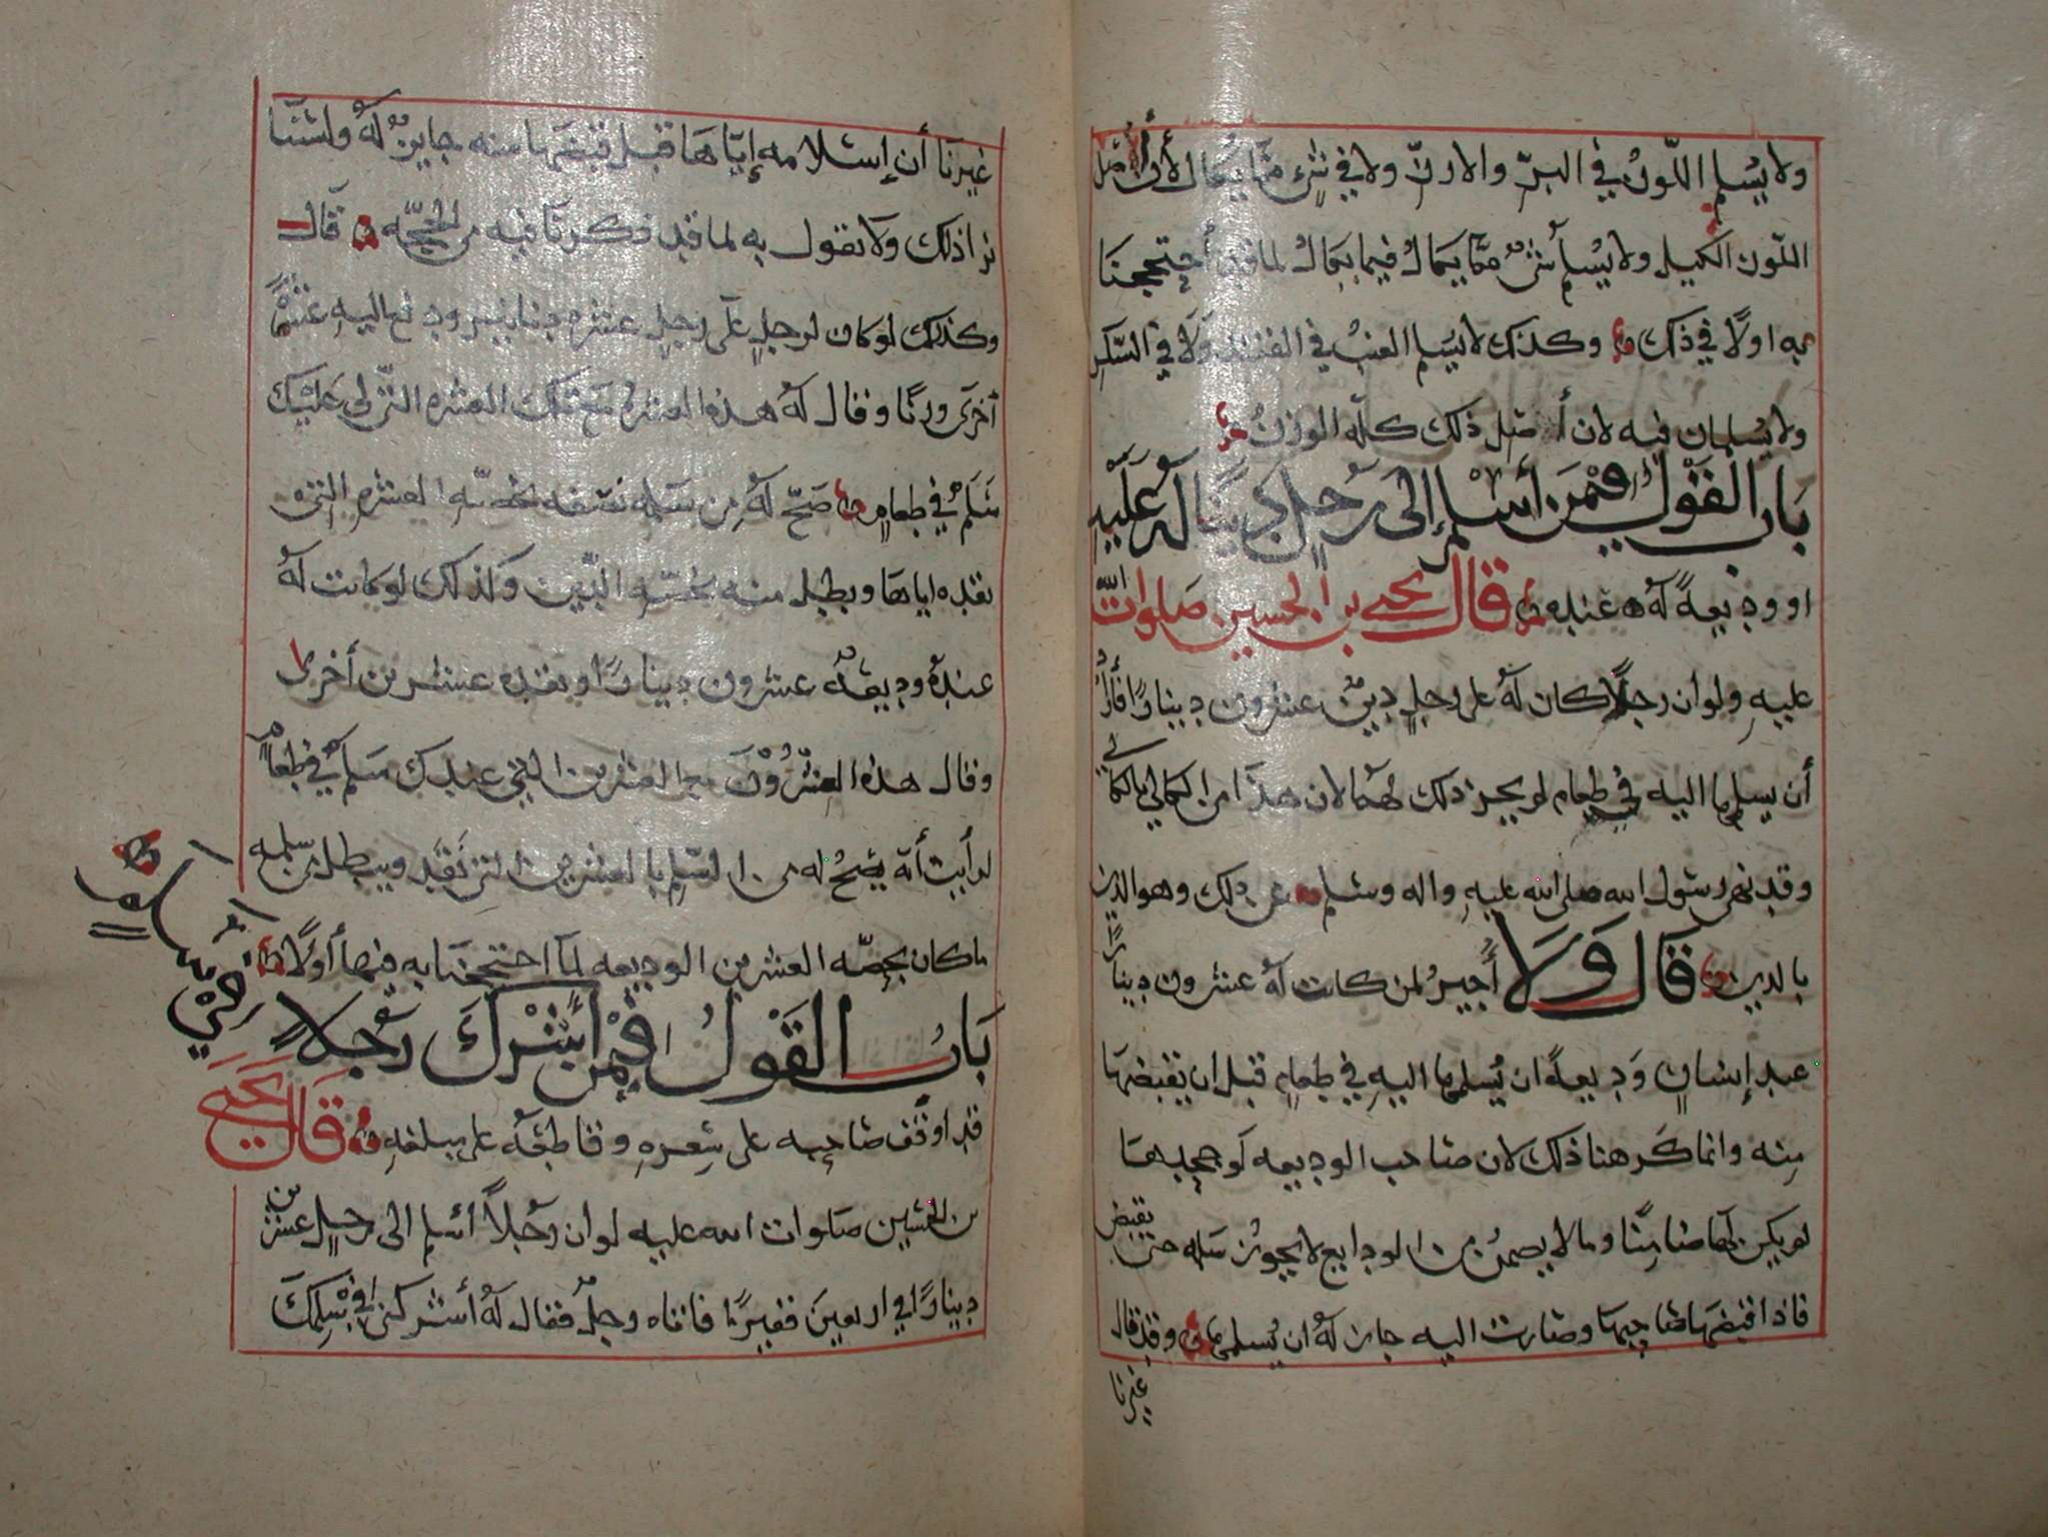 ولا يسلم اللوز في البر والارز ولا في شيء مما يكال لأن أصل
اللوز الكيل ولا يسلم شيء مما يكال فيما يكال لما قد أحتججنا
به اولًا في ذلك وكذلك لا يسلم العنب في القند ولا في السكر
ولا يسلمان فيه لان أصل ذلك كله الوزن
بَاب القَول فيمَن أسْلم إلى رَجلٍ دَينًا له عَلَيهِ
او وديعةً لَهُ عنده قال يحيى بن الحسين صلوات الله
عليهِ ولو ان رجلًا كان لَهُ على رجلٍ دينٌ عشرون دينارًا فأراد
أن يسلمها اليه في طعام لم يجز ذلك لهما لان هذا من الكالي بالكالي
وقد نهى رسول الله صلى الله عليهِ واله وسلم عن ذلك وهو الدين
بالدين قَال وَلَا أُجيزُ لمن كانت لَهُ عشرون دينارًا
عند إنسانٍ وَديعةً ان يُسلمها اليهِ في طعامٍ قبل ان يقبضهَا
مِنه وانما كَرهنا ذلك لان صاحب الوديعه لو جحدهَا
لم يكن لهَا ضامِنًا وما لا يضمن من الودايع لا يجوز سلمه حتى يقبض
فاذا قبضهَا صَاحبها وصَارت اليه جاز لَهُ ان يُسلمها وقد قال
غيرنا
غيرنَا أن إسْلامه إيّاهَا قبل قبضهَا منه جايزٌ لَهُ ولسْنَا
نرا ذلك وَلَا نقول به لما قد ذكرنَا فيه من الحُجّه قَال
وكذلك لو كان لرجلٍ على رجلٍ عشره دنانير ودفع اليهِ عشرةً
أخرَى وزنًا وقال لَهُ هذه العشرة مَع تلك العشره التي لي عَلَيْك
سَلَمٌ في طعامٍ صَحّ لَهُ مِن سَلمه نصفه بحصّه العشرهِ التي
نقده اياهَا وبطل منه بحصّه الدّين وكذلك لو كانت لَهُ
عندهُ وديعَةٌ عشرون دينارًا ونقده عشرين أخرى
وقال هذه العِشْرُوْنَ مع العشرين التي عندك سَلَمٌ في طعامٍ
لرأيت أنه يَصِحُ له من السّلم بالعشرين التي نَقَد ويبطل من سَلمه
ما كان بحِصّه العشرين الوديعه لما احتججنَا به فيها أولًا
بَابُ القَولُ فِيْمَن أشْرَكَ رَجلًا
قد اوقف صَاحبه على سِعرهِ وقاطعَهُ على مبلغهِ قَال يَحيى
بن الحسَين صَلوات الله عليه لو ان رَجُلًا اسْلم الى رجلٍ عشرين
دينارًا في اربعينَ قفيزًا فاتاه رجلٌ فقال لَهُ أشركنى في سَلمِكَ